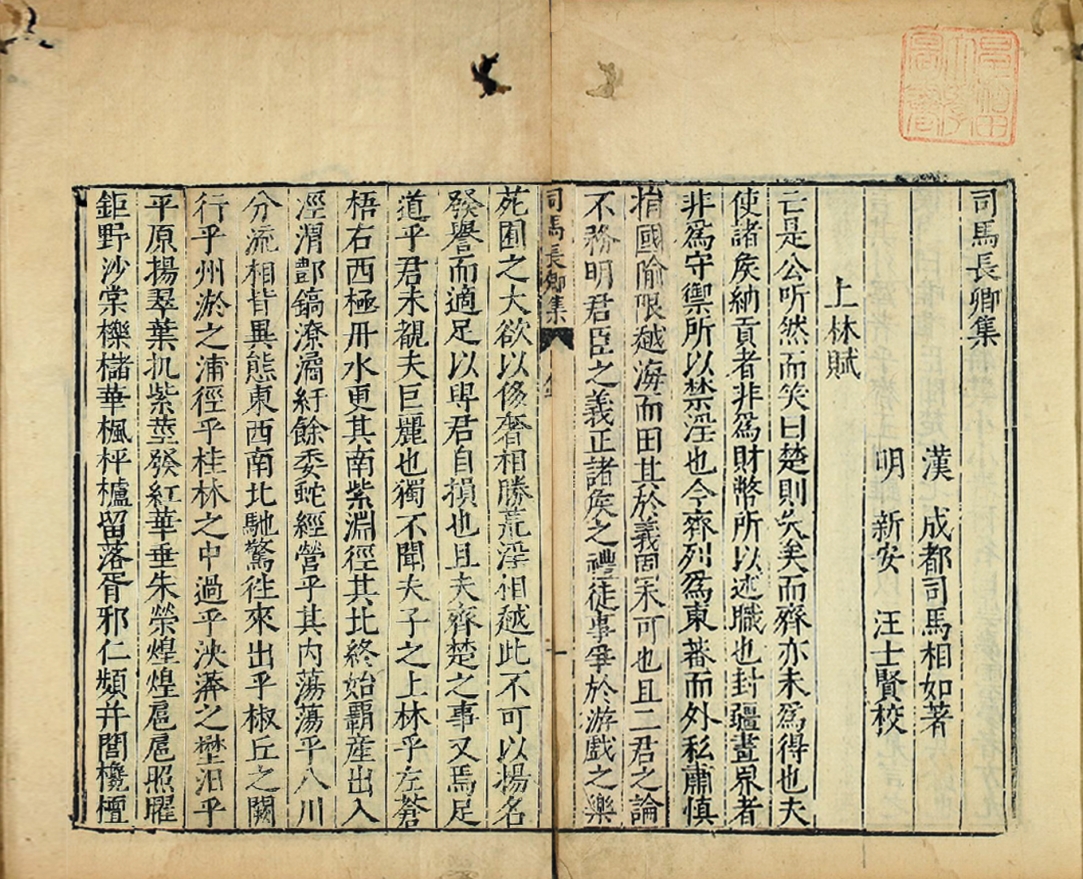 司馬長卿集
漢 成都司馬相如著
明 新安 汪士賢校
上林賦
亡是公听然而笑曰楚則失矣而齊亦未爲得也夫
使諸侯納貢者非爲財幣所以述職也封疆畫界者
非爲守禦所以禁淫也今齊列爲東蕃而外私肅慎
捐國隃限越海而田其於義固未可也且二君之論
不務明君臣之義正諸侯之禮徒事爭於游戲之樂
司馬長卿集
一
苑囿之大欲以侈奢相勝荒淫相越此不可以揚名
發譽而適足以卑君自損也且夫齊楚之事又焉足
道乎君未覩夫巨麗也獨不聞夫子之上林乎左蒼
梧右西極丹水更其南紫淵徑其北終始霸産出入
涇渭酆鎬潦潏紆餘委蛇經營乎其内蕩蕩乎八川
分流相背異態東西南北馳騖徃來出乎椒丘之闕
行乎州淤之浦徑乎桂林之中過乎泱漭之壄汨乎
平原揚翠葉扤紫莖發紅華垂朱榮煌煌扈扈照曜
鉅野沙棠櫟櫧華楓枰櫨留落胥邪仁頻并閭欃檀